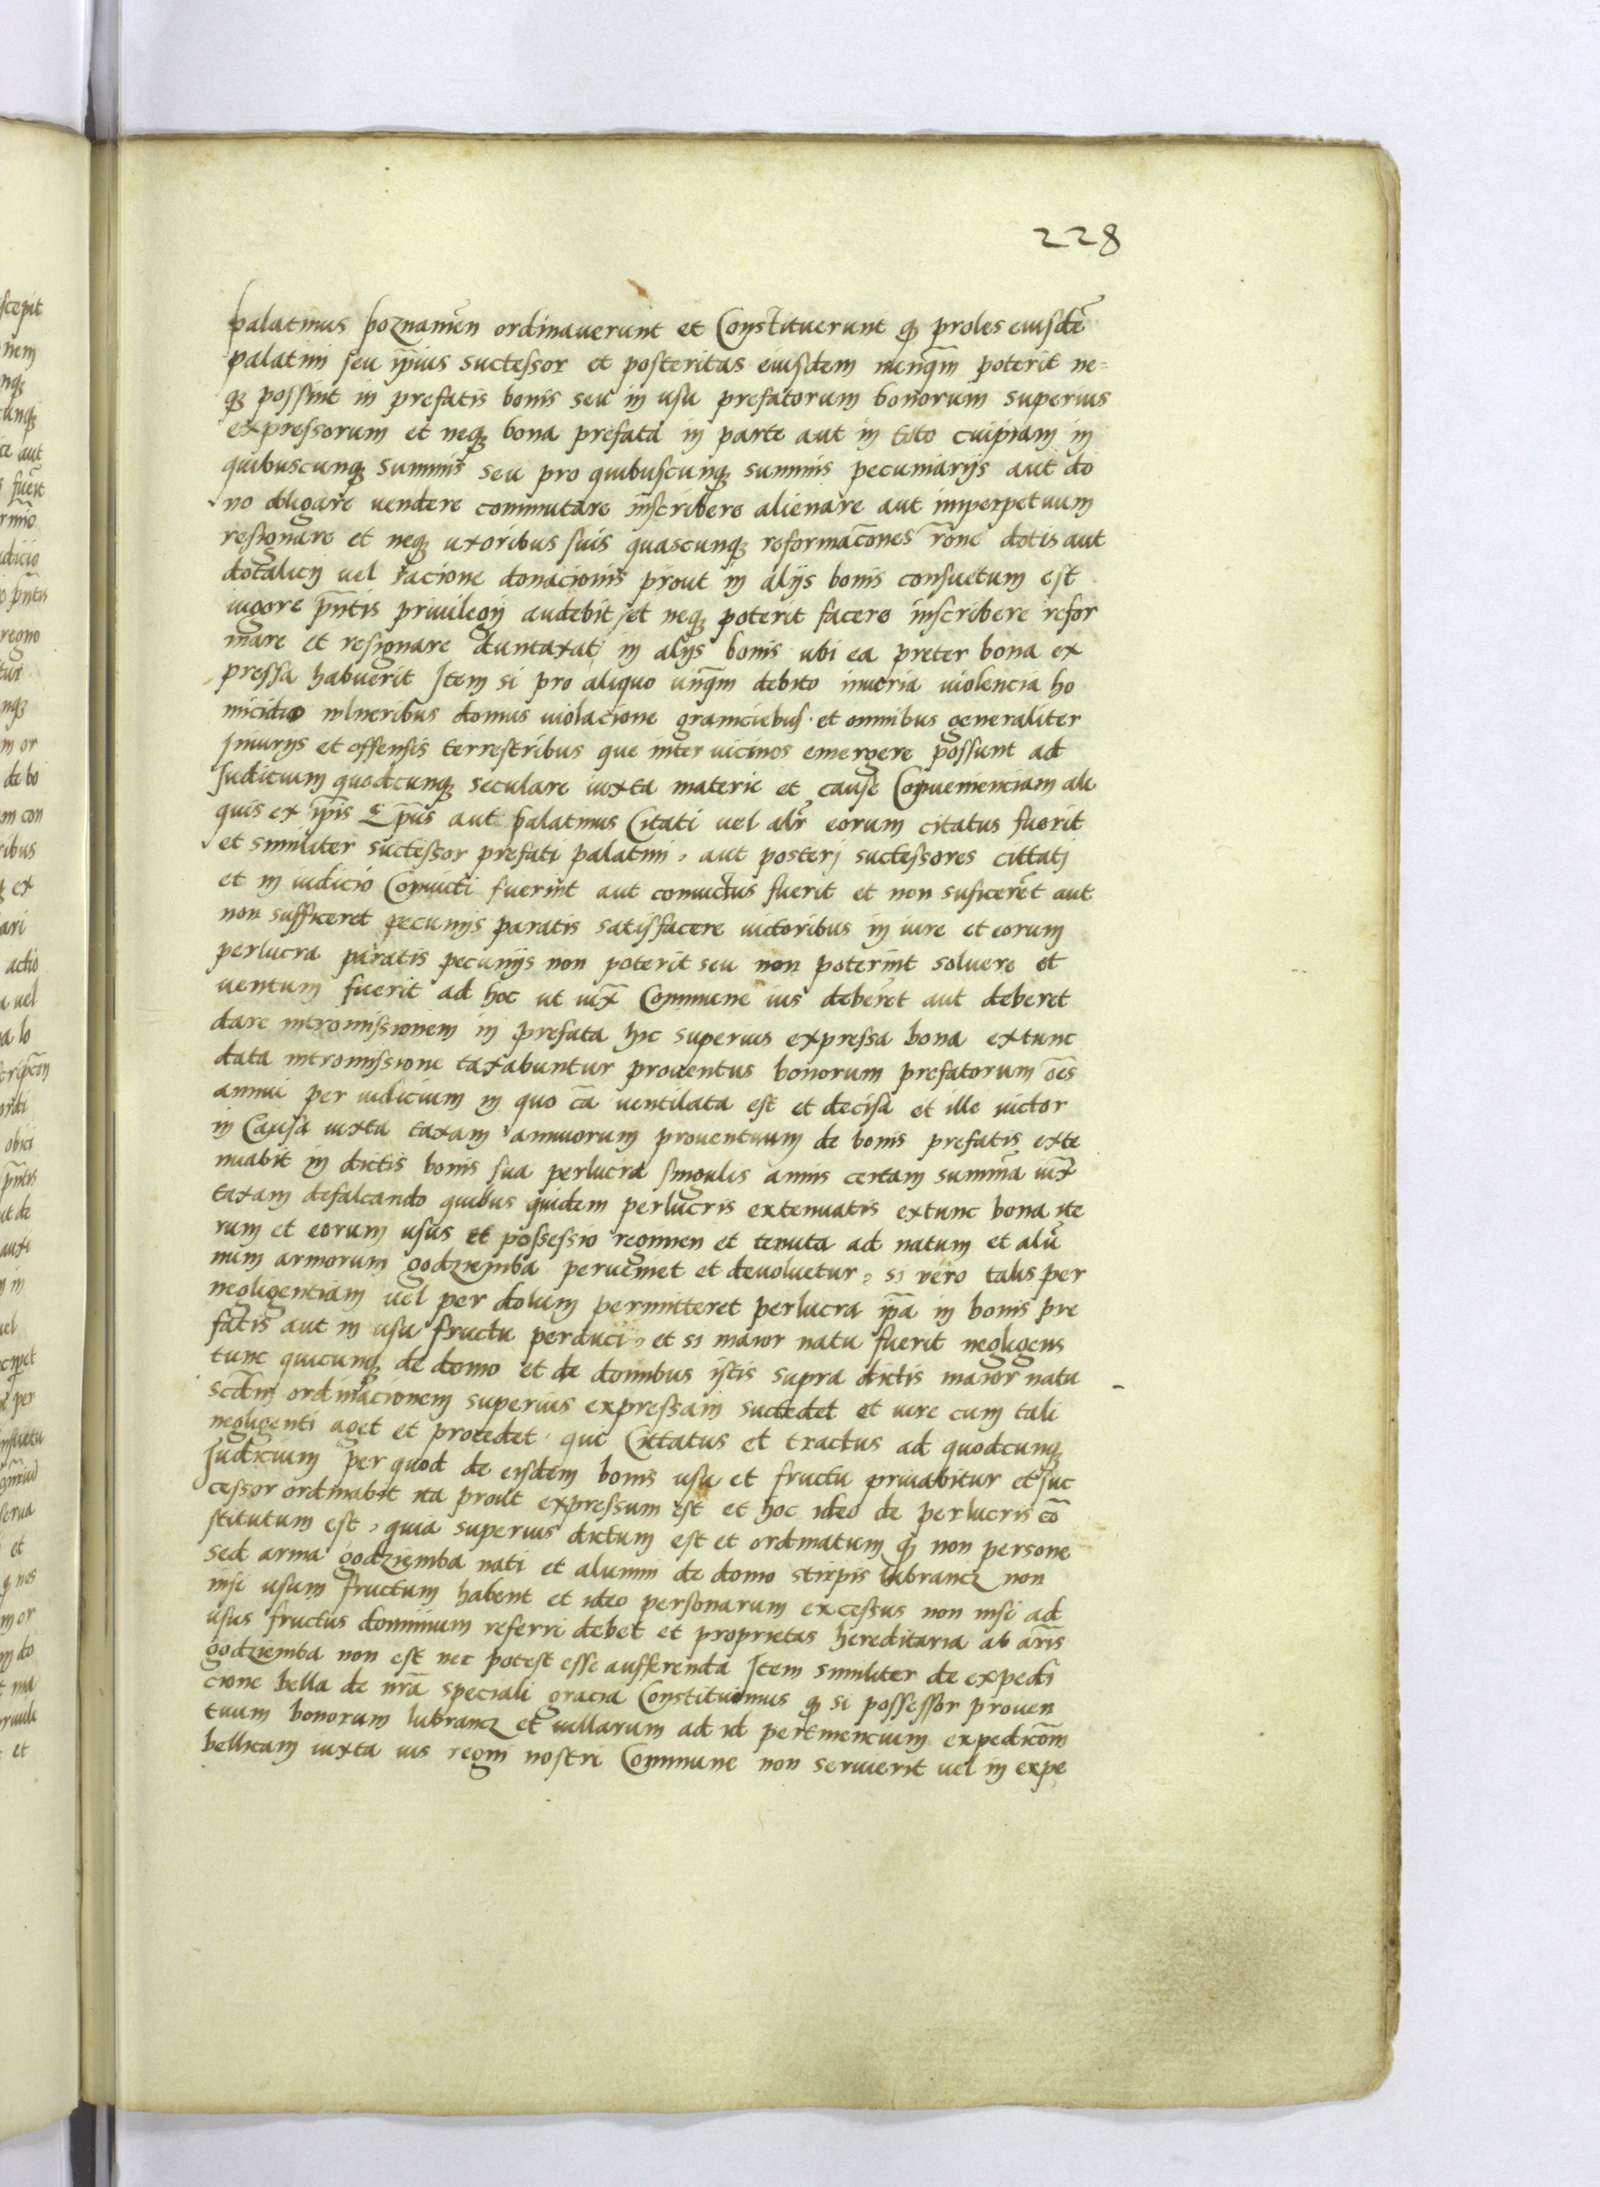 228
palatinus poznaniẽn ordinauerunt et Constituerunt ꝙ proles eiusdẽ
palatini seu ip̃ius successor et posteritas eiusdem nunq̃m poterit ne=
qꝫ possint in prefatis bonis seu in usu prefatorum bonorum superius
expressorum et neqꝫ bona prefata in parte aut in toto cuipiam in
quibuscunqꝫ summis seu pro quibuscunqꝫ summis pecuniarijs aut do
no obligare uendere commutare inscribere alienare aut imperpetuum
resignare et neqꝫ uxoribus suis quascunqꝫ reformac̃ones r̃one dotis aut
dotalicij uel racione donacionis prout in alijs bonis consuetum est
uigore pñtis priuilegij audebit et neqꝫ poterit facere inscribere refor
mare et resignare duntaxat in alijs bonis ubi ea preter bona ex
pressa habuerit Item si pro aliquo unq̃m debito iniuria violencia ho
micidio vlneribus domus uiolacione graniciebus et omnibus generaliter
Iniurijs et offensis terrestribus que inter uicinos emergere possunt ad
Iudicium quodcunqꝫ seculare iuxta materie et cause Conuenienciam ali
quis ex ip̃is Ep̃us aut palatinus Citati uel alt̃r eorum citatus fuerit
et similiter successor prefati palatini, aut posterj successores cittatj
et in iudicio Conuicti fuerint aut conuictus fuerit et non suficerẽt aut
non sufficeret pecunijs paratis satisfacere uictoribus in iure et eorum
perlucra paratis pecunijs non poterit seu non poterint soluere et
uentum fuerit ad hoc ut iux̃ Commune ius deberẽt aut deberet
dare intromissionem in prefata hic superius expressa bona extunc
data intromissione taxabuntur prouentus bonorum prefatorum oẽs
annui per iudicium in quo cã uentilata est et decisa et ille uictor
in Causa iuxta taxam annuorum prouentuum de bonis prefatis exte
nuabit in dictis bonis sua perlucra singulis annis certam summã iux̃
taxam defalcando quibus quidem perlucris extenuatis extunc bona ite
rum et eorum usus et possessio regimen et tenuta ad natum et alũ
num armorum godziemba perueniet et deuoluetur, si vero talis per
negligentiam uel per dolum permitteret perlucra ip̃a in bonis pre
fatis aut in usu fructu perduci, et si maior natu fuerit negligens
tunc quicunqꝫ de domo et de domibus istis supra dictis maior natu
scd̃m ordinacionem superius expressam succedet et iure cum tali
negligenti aget et procedet qui Cittatus et tractus ad quodcunqꝫ
Iudicium per quod de eisdem bonis usu et fructu priuabitur et suc
cessor ordinabit ita prout expressum est et hoc ideo de perlucris cõ
stitutum est, quia superius dictum est et ordinatum ꝙ non persone
sed arma godziemba nati et alumni de domo stirpis lubrancz non
nisi usum fructum habent et ideo personarum excessus non nisi ad
usus fructus dominium referri debet et proprietas hereditaria ab ar̃is
godziemba non est nec potest esse aufferenda Item similiter de expedi
cione bella de nr̃a speciali gracia Constituimus ꝙ si possessor prouen
tuum bonorum lubrancz et uillarum ad id pertinencium expedicõm
bellicam iuxta ius regni nostri Commune non seruierit uel in expe